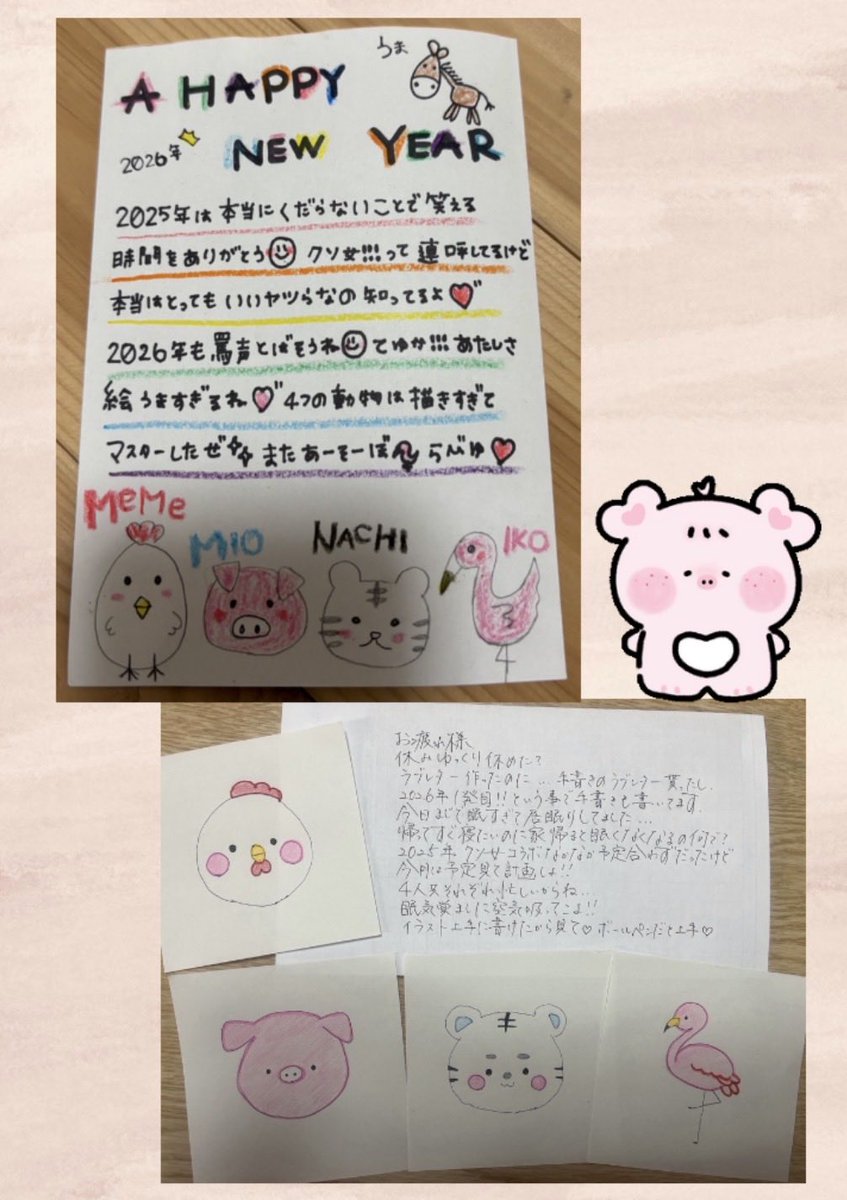 A HAPPY
うま
2026年 NEW YEAR
2025年は本当にくだらないことで笑える
時間をありがとう クソ女!!!って連呼してるけど
本当はとってもいいヤツらなの知ってるよ♥
2026年も罵声とばそうね てゆか!!! あたしさ
絵うますぎるね♡ 4つの動物は描きすぎて
マスターしたぜ またあーそーぼ らびゅ♥
MeMe
MIO
NACHI
IKO
お疲れ様
休みゆっくり休めた?
ラブレター作ったのに... 手書きのラブレター貰ったし
2026年1発目!!という事で手書きも書いてます
今日まじで眠すぎて居眠りしてました...
帰ってすぐ寝たいのに家帰ると眠くなくなるの何で?
2025年クソ女コラボなかなか予定合わずだったけど
今月は予定見て計画しよ!!
4人共それぞれ忙しいからね...
眠気覚ましに空気吸ってこよ!!
イラスト上手に書けたから見て♡ ボールペンだと上手♡